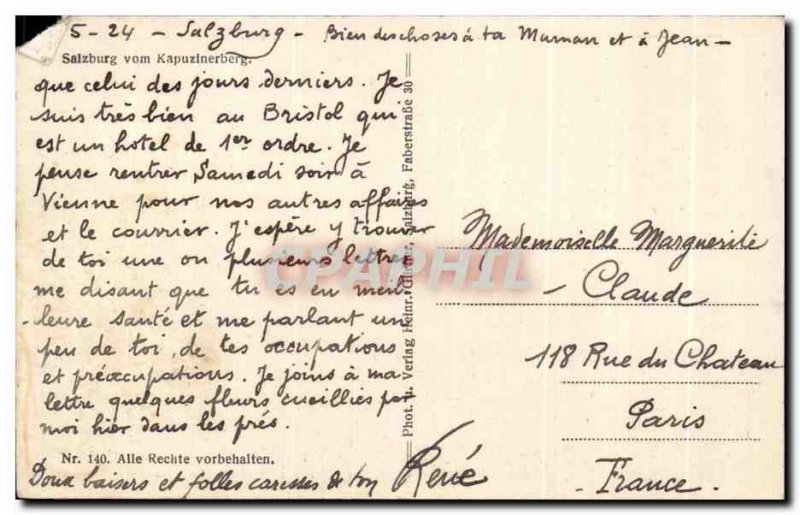 5-24 - Salzburg - Bien des choses à ta Maman et à Jean -
Salzburg vom Kapuzinerberg.
que celui des jours derniers. Je
suis très bien au Bristol qui
est un hotel de 1er ordre. Je
pense rentrer Samedi soir à
Vienne pour nos autres affaires
et le courrier. J'espère y trouver
de toi une ou plusieurs lettres
me disant que tu es en meil-
-leure santé et me parlant un
peu de toi, de tes occupations
et préoccupations. Je joins à ma
lettre quelques fleurs cueillies par
moi hier dans les prés.
Nr. 140. Alle Rechte vorbehalten.
Doux baisers et folles caresses de ton René
Phot. u. Verlag Heinr. Salzburg, Faberstraße 30
Mademoiselle Marguerite
- Claude
118 Rue du Chateau
Paris
- France -
CPAPHIL